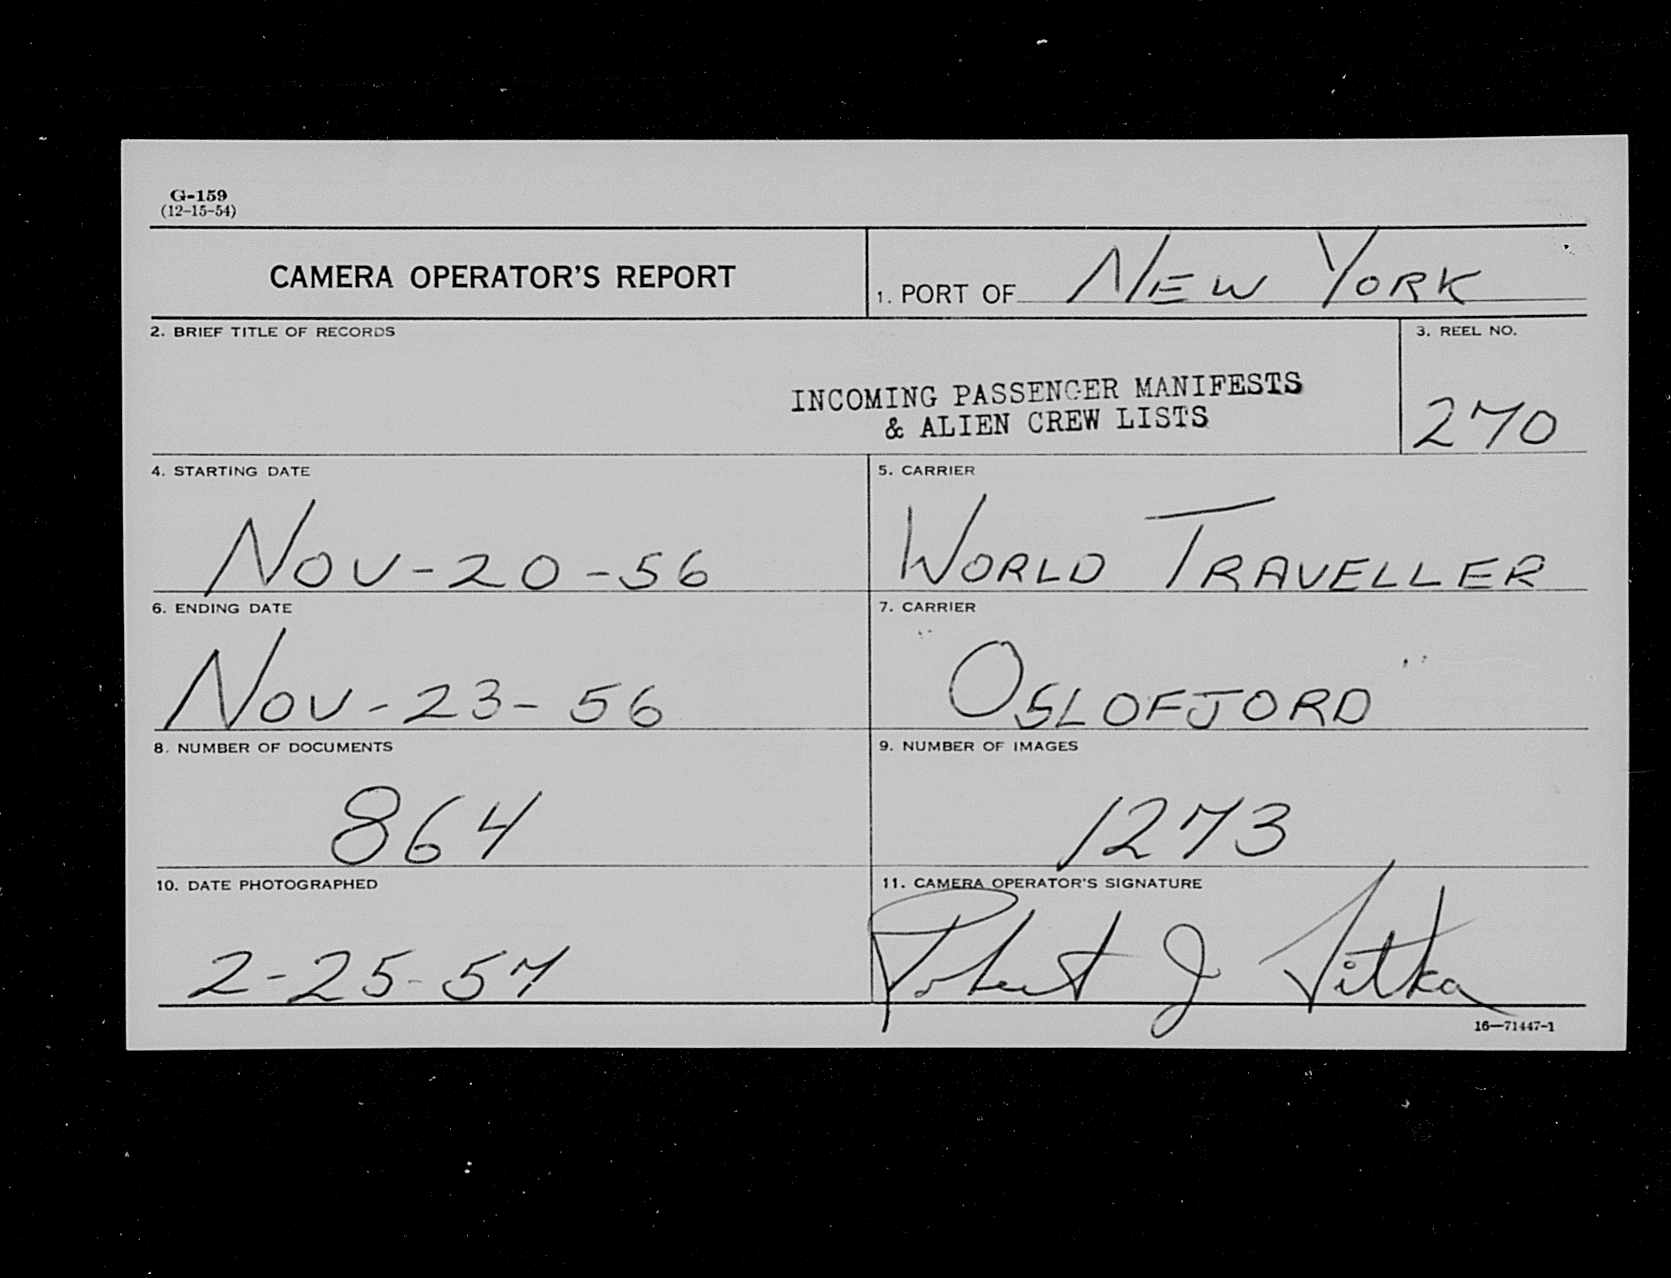 G-159
(12-15-54)
CAMERA OPERATOR'S REPORT
1. PORT OF NEW YORK
2. BRIEF TITLE OF RECORDS
INCOMING PASSENGER MANIFESTS
& ALIEN CREW LISTS
3. REEL NO.
270
4. STARTING DATE
NOV-20-56
5. CARRIER
WORLD TRAVELLER
6. ENDING DATE
NOV-23-56
7. CARRIER
"OSLOFJORD"
8. NUMBER OF DOCUMENTS
864
9. NUMBER OF IMAGES
1273
10. DATE PHOTOGRAPHED
2-25-57
11. CAMERA OPERATOR'S SIGNATURE
Robert J
16—71447-1